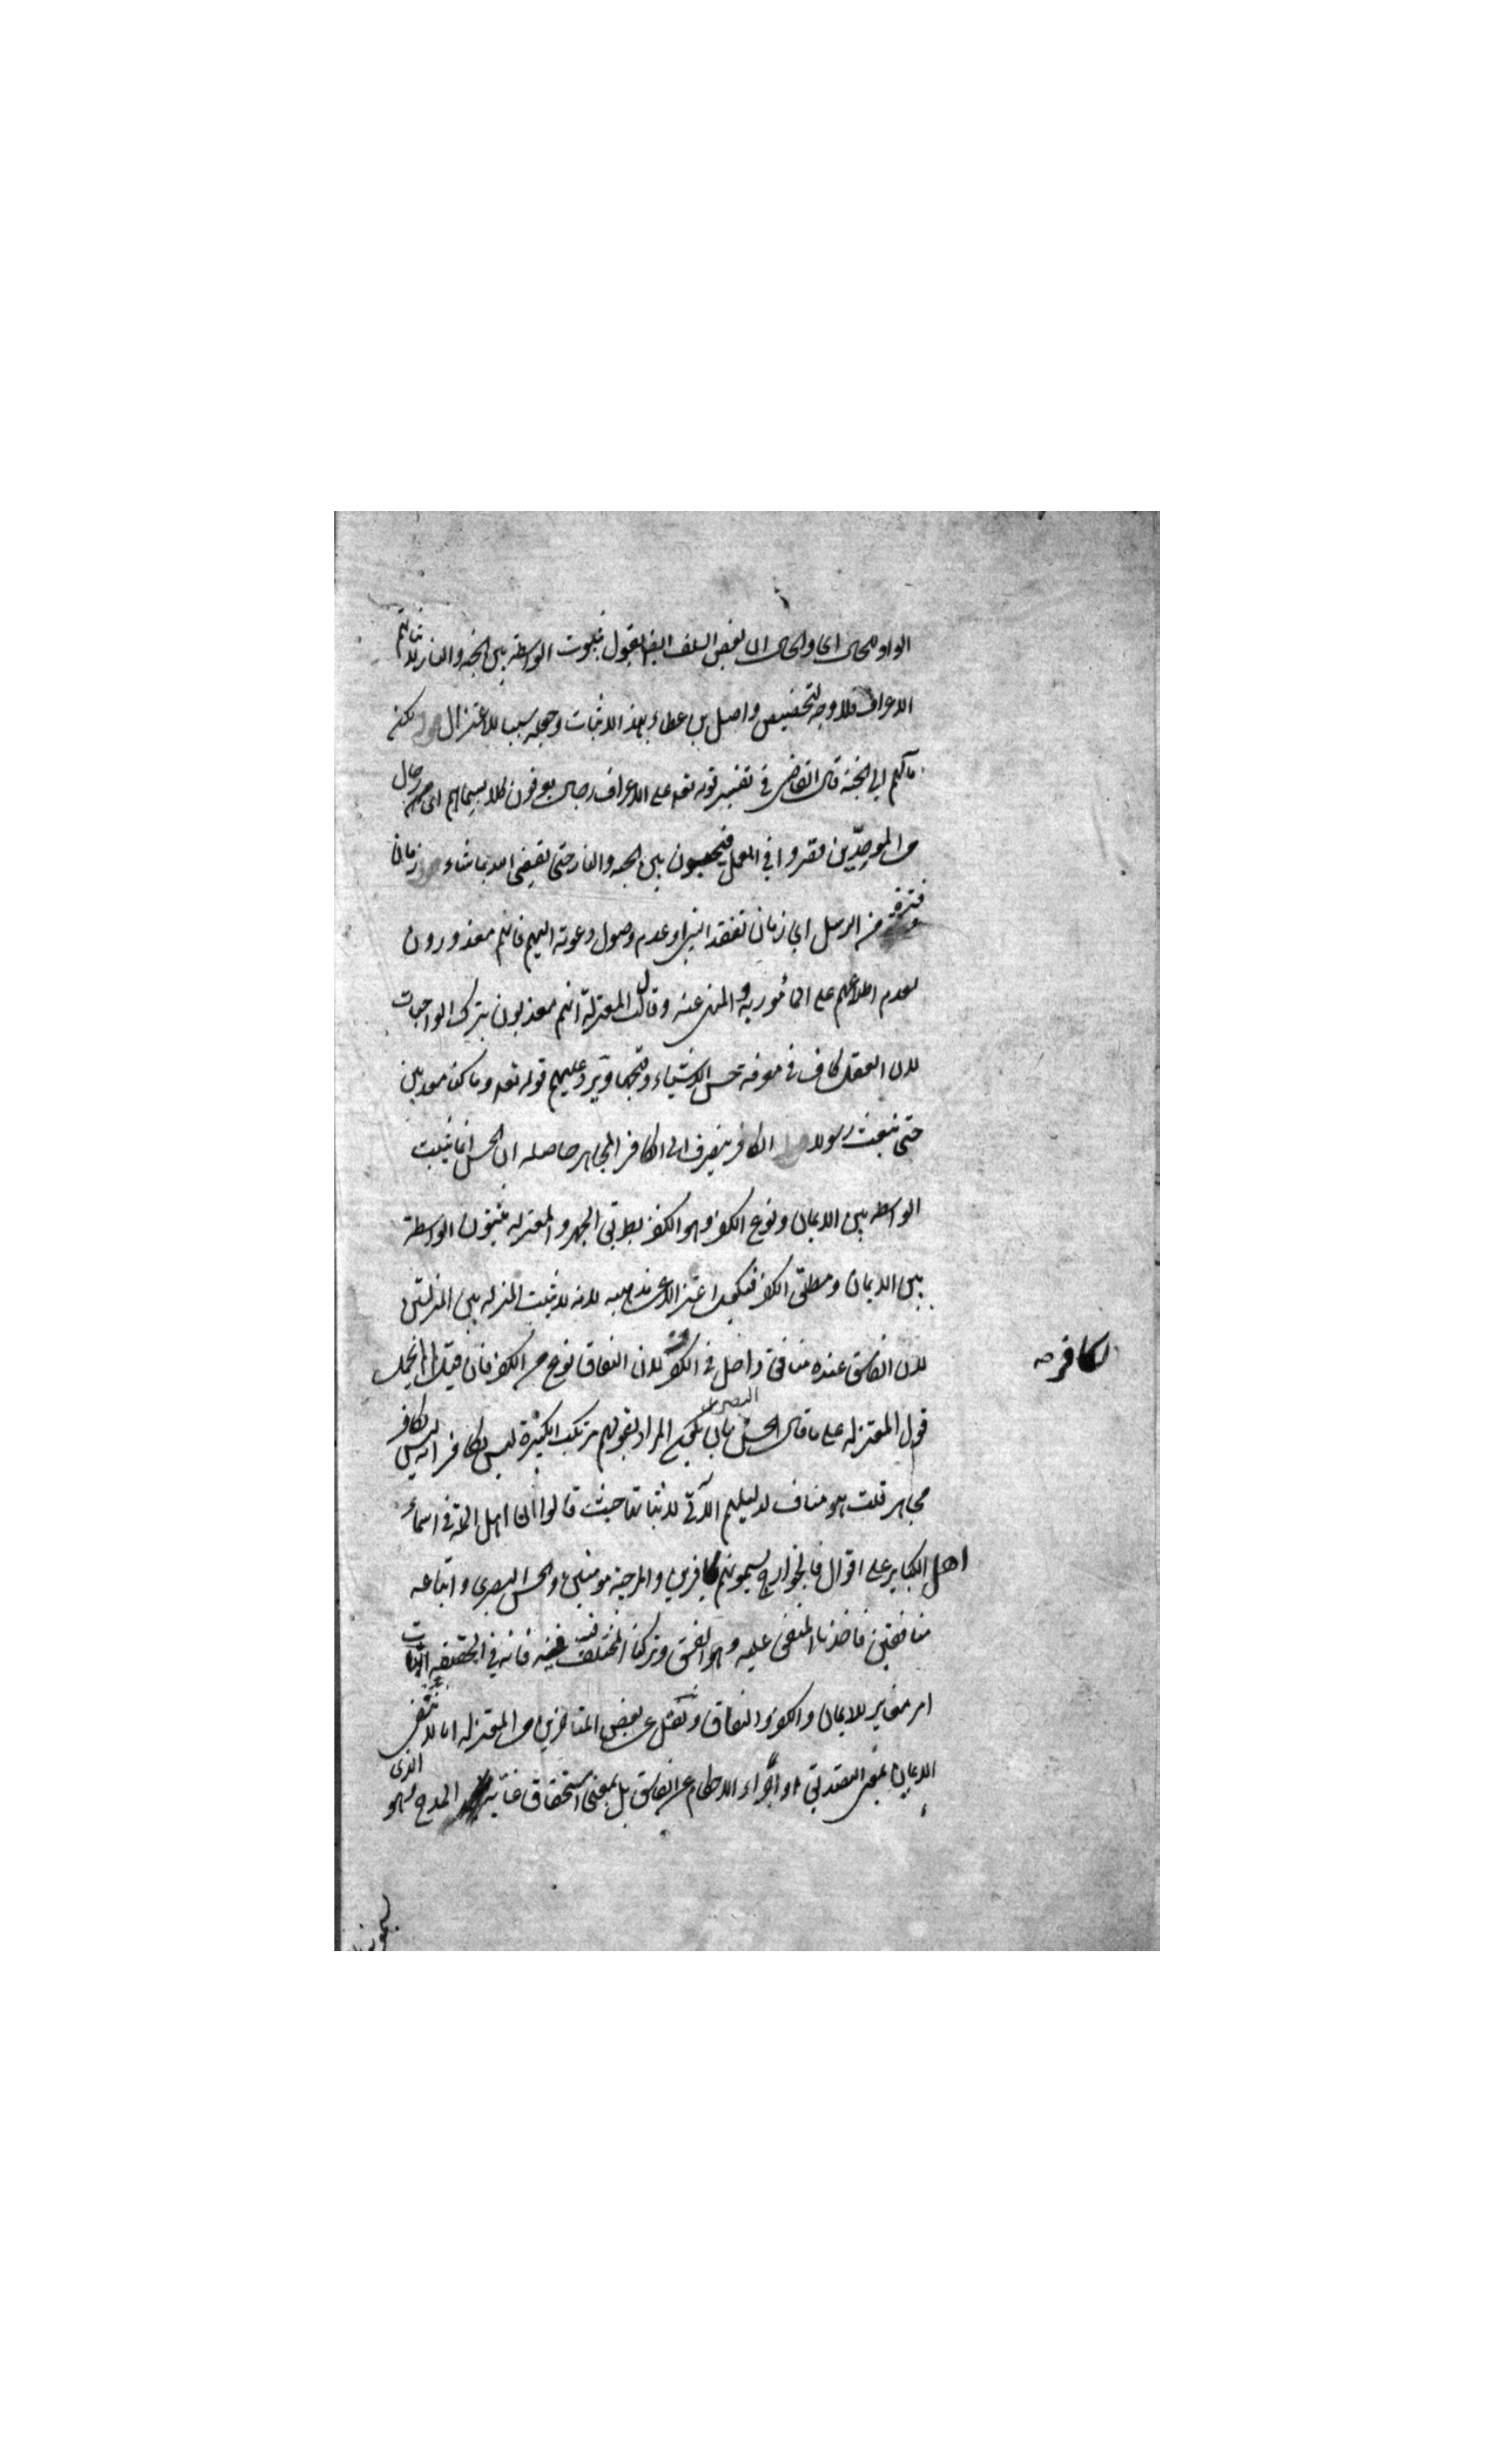 الواو للحال اى والحال ان بعض السلف ايضا يقول بثبوت الواسطة بين الجنة والنار لاثباتهم
الاعراف فلا وجه لتخصيص واصل بن عطاء بهذا الاثبات وجعله سببا للاعتزال لكنه
مآلهم الى الجنة قال القاضى فى تفسير قوله تعه على الاعراف رجال يعرفون كلا بسيماهم اى رجال
من الموحّدين قصروا فى العمل فيحبسون بين الجنة والنار حتى يقضى الله بما شاء زمان
فترة من الرسل اى زمان تفقد النبى او عدم وصول دعوته اليهم فانهم معذورون
لعدم اطلاعهم على المأمور به والمنهى عنه وقالت المعتزلة انهم معذبون بترك الواجبات
لان العقل كاف فى معرفة حسن الاشياء وقبحها ويرد عليهم قوله تعه وما كنا معذبين
حتى نبعث رسولا الكافر ينصرف الى الكافر المجاهر حاصله ان الحسن انما يثبت
الواسطة بين الايمان ونوع الكفر وهو الكفر بطريق الجهر والمعتزلة يثبتون الواسطة
بين الايمان ومطلق الكفر فيكون اعتزالا عن مذهبه لانه لا يثبت المنزلة بين المنزلتين
لان الفاسق عنده منافق داخل فى الكفر لان النفاق نوع من الكفر فان قيل لم لا يحمل
لكافر صه
قول المعتزلة على ما قال الحسن البصرى بان يكون المراد بقولهم مرتكب الكبيرة ليس بكافر انه ليس بكافر
مجاهر قلت هو مناف لدليلهم الآتى لاثباتها حيث قالوا ان اهل الملة فى اسماء
اهل الكباير على اقوال فالخوارج يسمونهم كافرين والمرجئة مومنين والحسن البصرى واتباعه
منافقين فاخذنا المتفق عليه وهو الفسق وتركنا المختلف فيه فانه فى الحقيقة اثبات
امر مغاير للايمان والكفر والنفاق ونقل عن بعض المتاخرين من المعتزلة انا لا ننفى
الايمان بمعنى التصديق او اجراء الاحكام عن الفاسق بل بمعنى استحقاق غاية المدح الذى هو